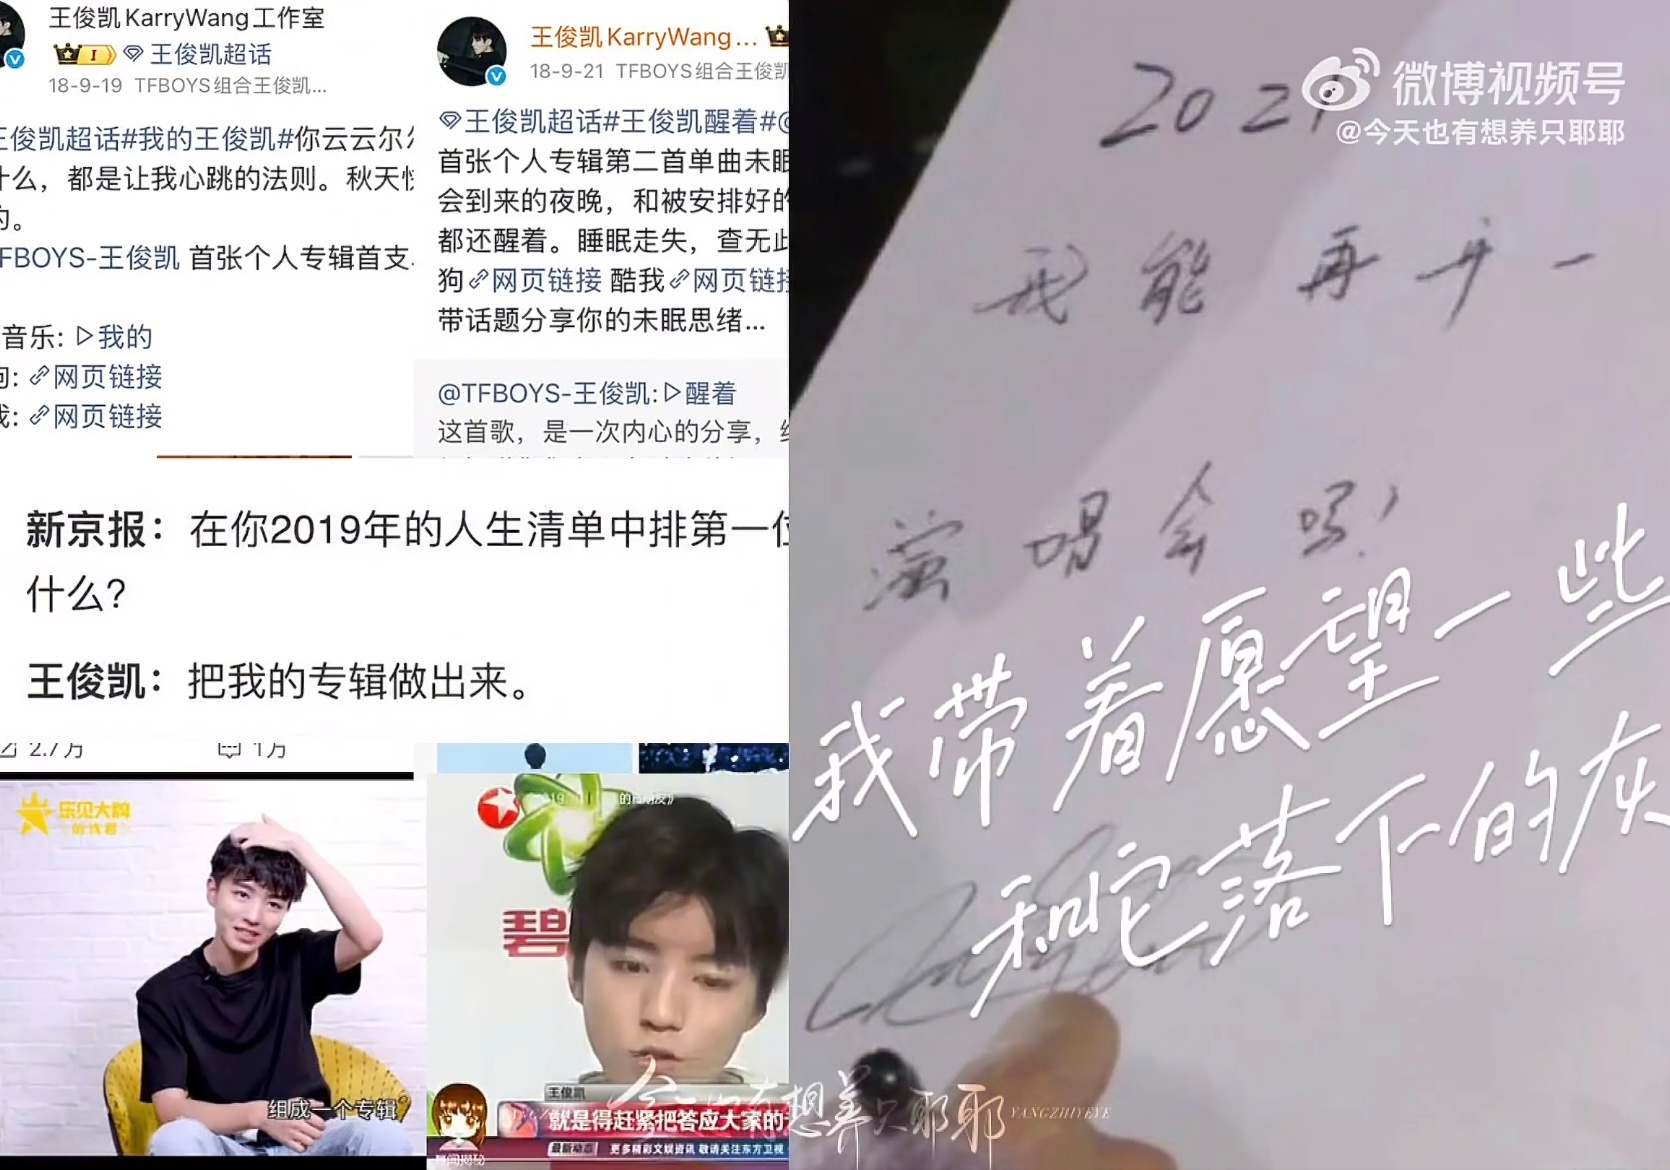 王俊凯KarryWang工作室
I 王俊凯超话
18-9-19 TFBOYS组合王俊凯...
王俊凯超话#我的王俊凯#你云云尔
什么，都是让我心跳的法则。秋天
的。
FBOYS-王俊凯 首张个人专辑首支
音乐: 我的
网页链接
网页链接
王俊凯KarryWang...
18-9-21 TFBOYS组合王俊凯
王俊凯超话#王俊凯醒着#@
首张个人专辑第二首单曲未眠
会到来的夜晚，和被安排好的
都还醒着。睡眠走失，查无此
狗网页链接 酷我网页链接
带话题分享你的未眠思绪...
@TFBOYS-王俊凯:醒着
这首歌，是一次内心的分享，
新京报：在你2019年的人生清单中排第一位
什么？
王俊凯：把我的专辑做出来。
2.7万 1万
乐见大牌
组成一个专辑
碧
王俊凯
就是得赶紧把答应大家的
最新动态 更多精彩文娱资讯 敬请关注东方卫视
微博视频号
@今天也有想养只耶耶
2021
我能再开一
演唱会吗?
我带着愿望一些
和它落下的灰
今天也有想养只耶耶
YANGZHIYEYE